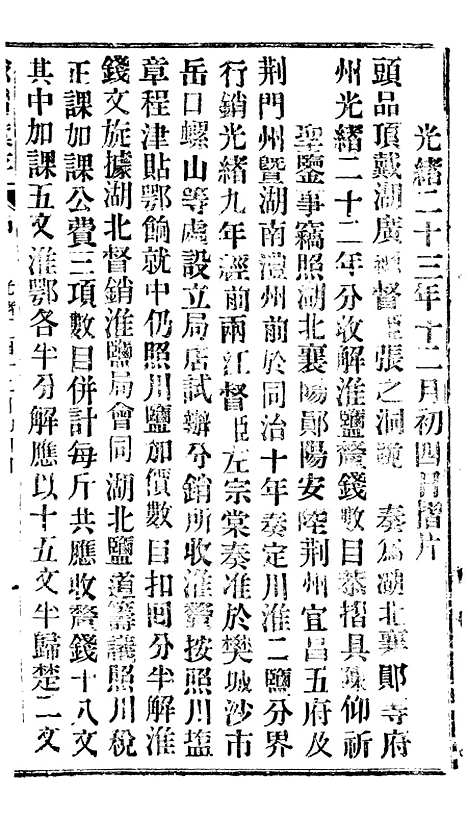 光緒二十三年十二月初四日摺片
頭品頂戴湖廣總督臣張之洞跪 奏為湖北襄鄖等府
州光緒二十二年分收解淮鹽釐錢數目恭摺具陳仰祈
聖鑒事竊照湖北襄陽鄖陽安陸荆州宜昌五府及
荆門州暨湖南澧州前於同治十年奏定川淮二鹽分界
行銷光緒九年經前兩江督臣左宗棠奏准於樊城沙市
岳口螺山等處設立局店試辦分銷所收淮釐按照川鹽
章程津貼鄂餉就中仍照川鹽加價數目扣回分半解淮
錢文旋據湖北督銷淮鹽局會同湖北鹽道籌議照川稅
正課加課公費三項數目併計每斤共應收釐錢十八文
其中加課五文淮鄂各半分解應以十五文半歸楚二文